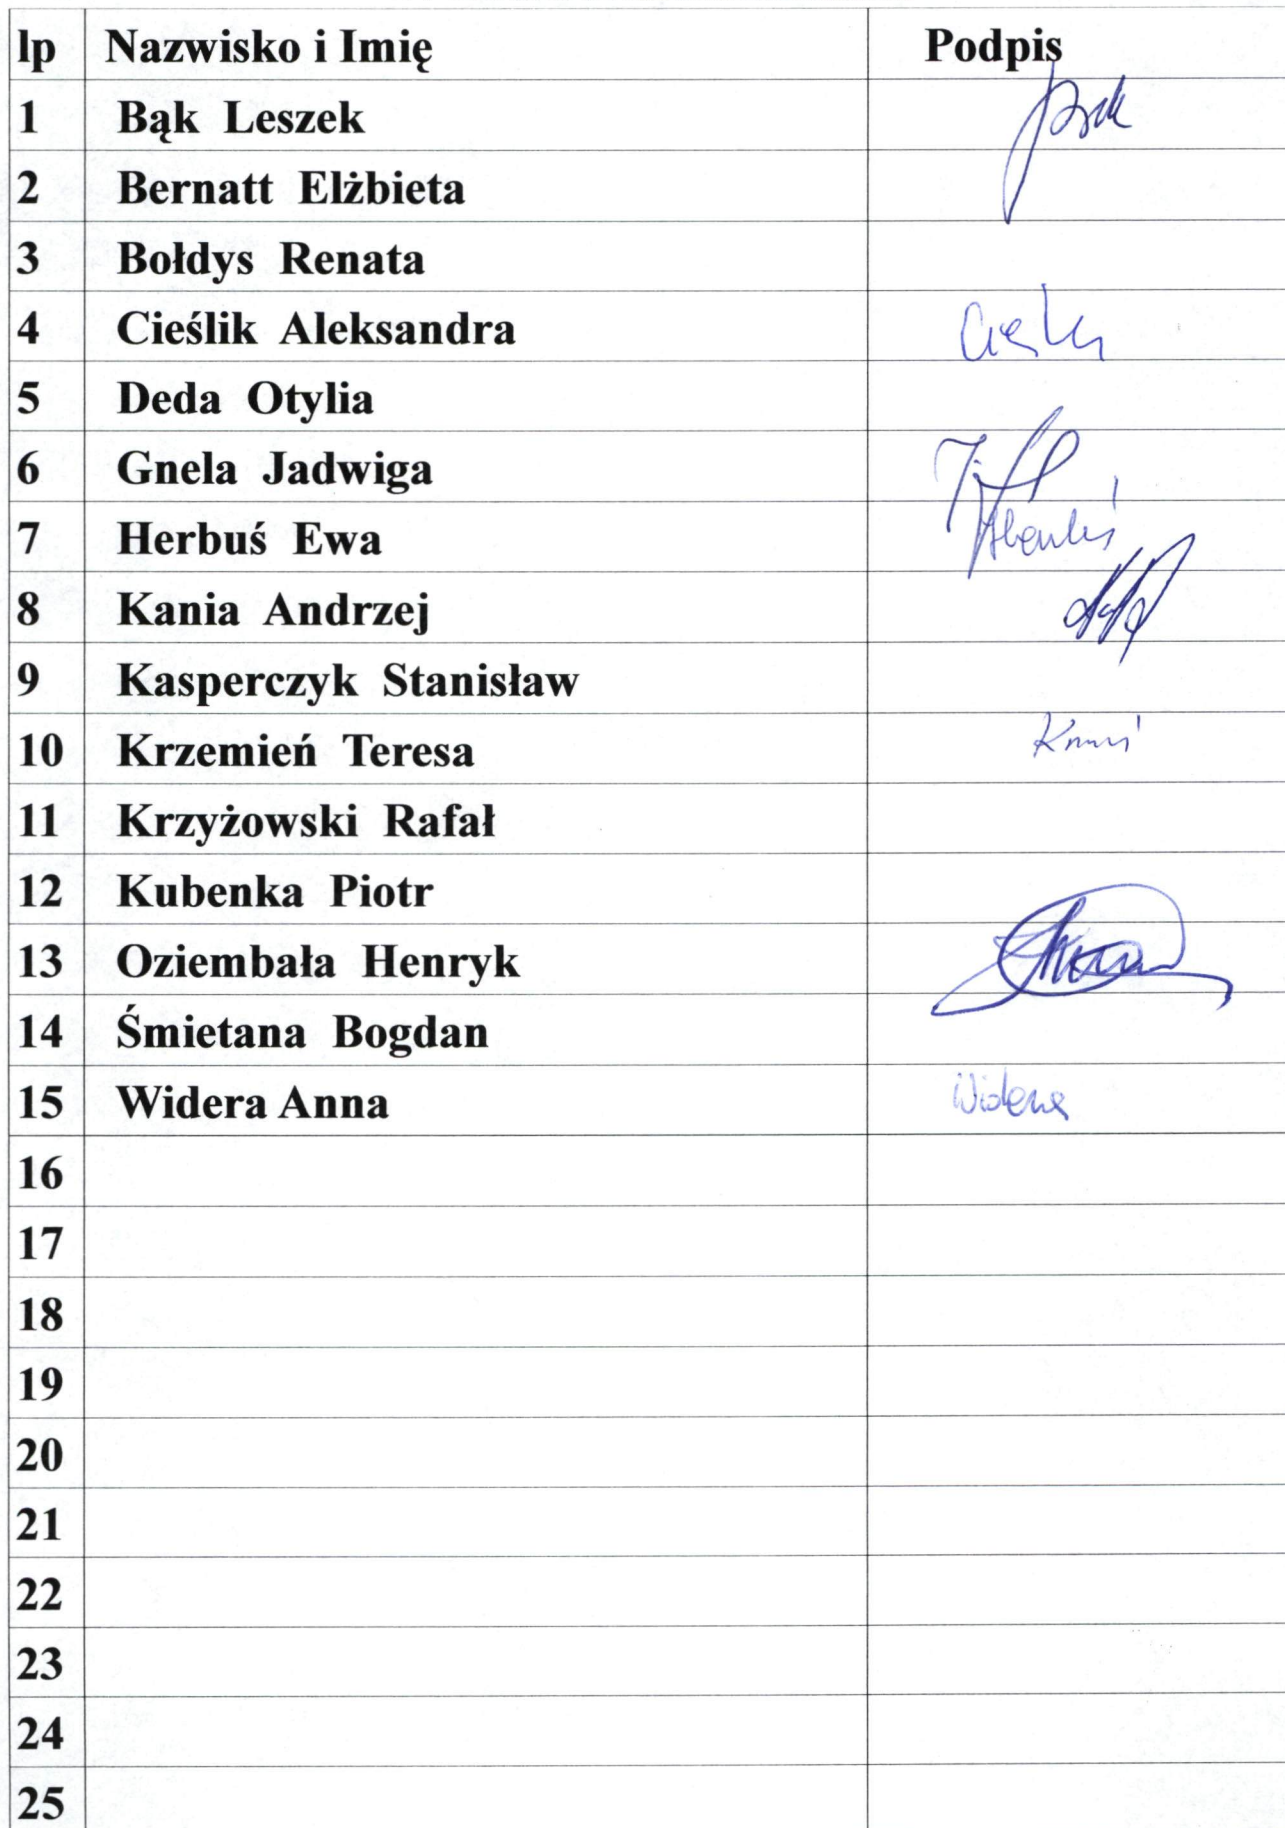 lp Nazwisko i Imię Podpis
1 Bąk Leszek
2 Bernatt Elżbieta
3 Bołdys Renata
4 Cieślik Aleksandra
5 Deda Otylia
6 Gnela Jadwiga
7 Herbuś Ewa
8 Kania Andrzej
9 Kasperczyk Stanisław
10 Krzemień Teresa
11 Krzyżowski Rafał
12 Kubenka Piotr
13 Oziembała Henryk
14 Śmietana Bogdan
15 Widera Anna Widera
16
17
18
19
20
21
22
23
24
25